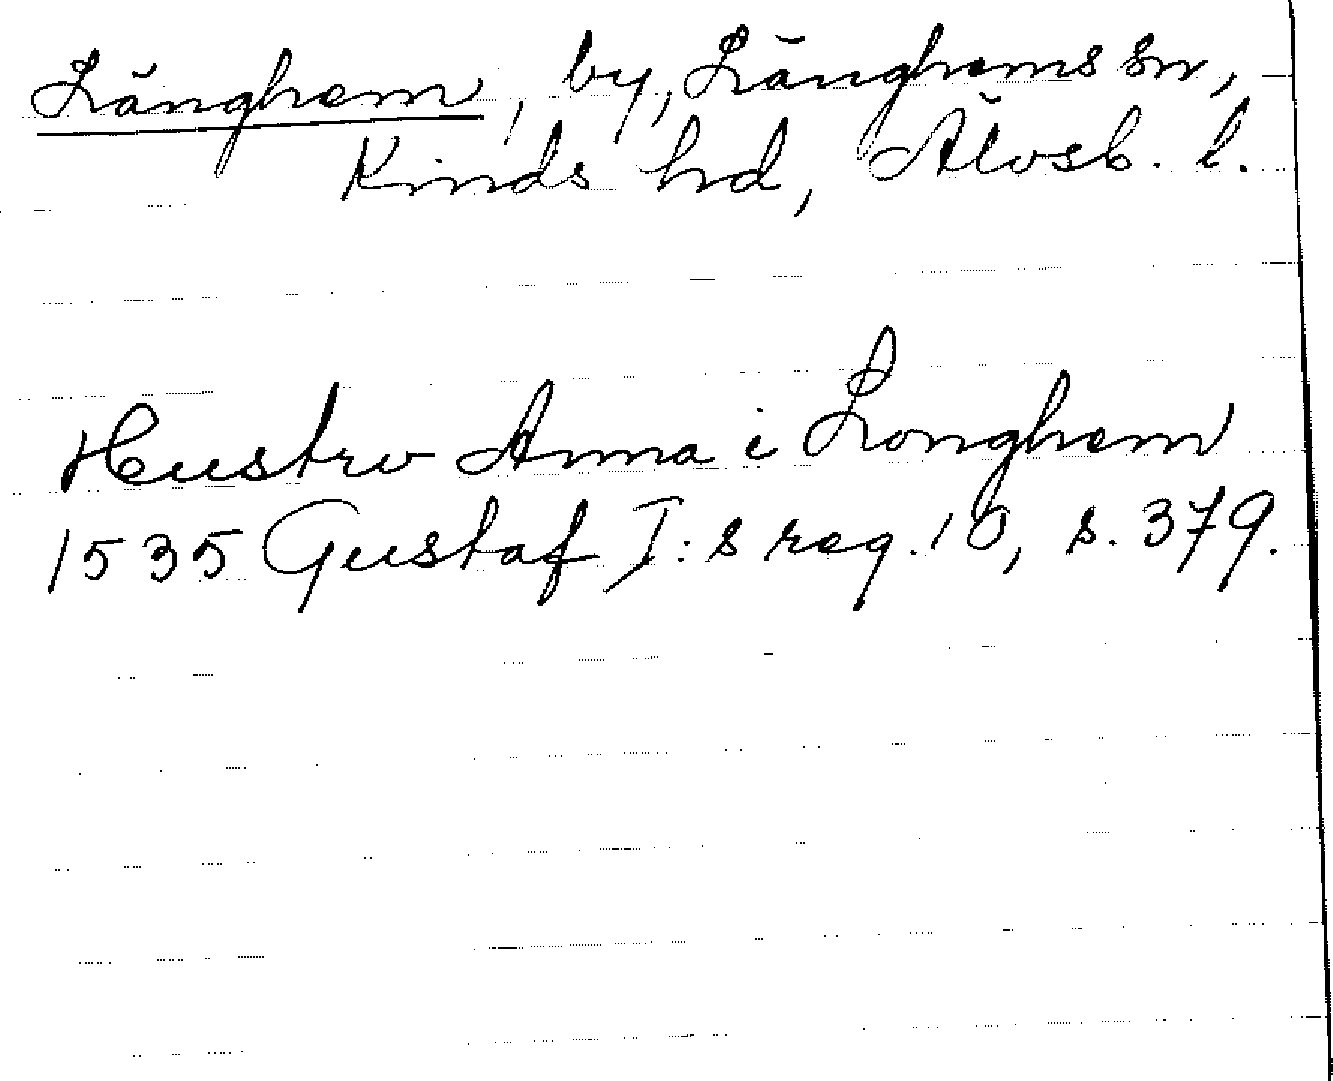 Länghem, by, Länghems sn,
Kinds hd, Älvsb. l.
Hustrv Anna i Longhem
1535 Gustaf I:s reg. 10, s. 379.